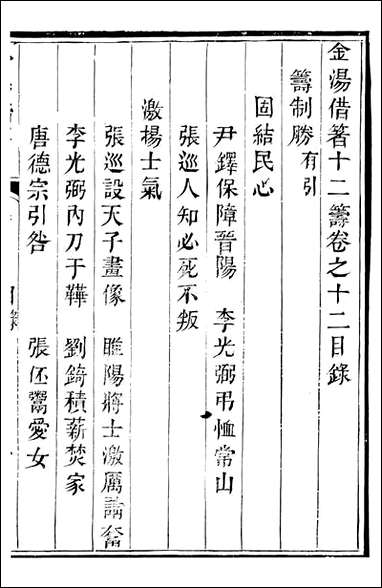 金湯借箸十二籌卷之十二目錄
籌制勝有引
固結民心
尹鐸保障晉陽 李光弼弔恤常山
張巡人知必死不叛
激揚士氣
張巡設天子畫像 睢陽將士激厲請奮
李光弼內刀于鞾 劉錡積薪焚家
唐德宗引咎 張伾鬻愛女